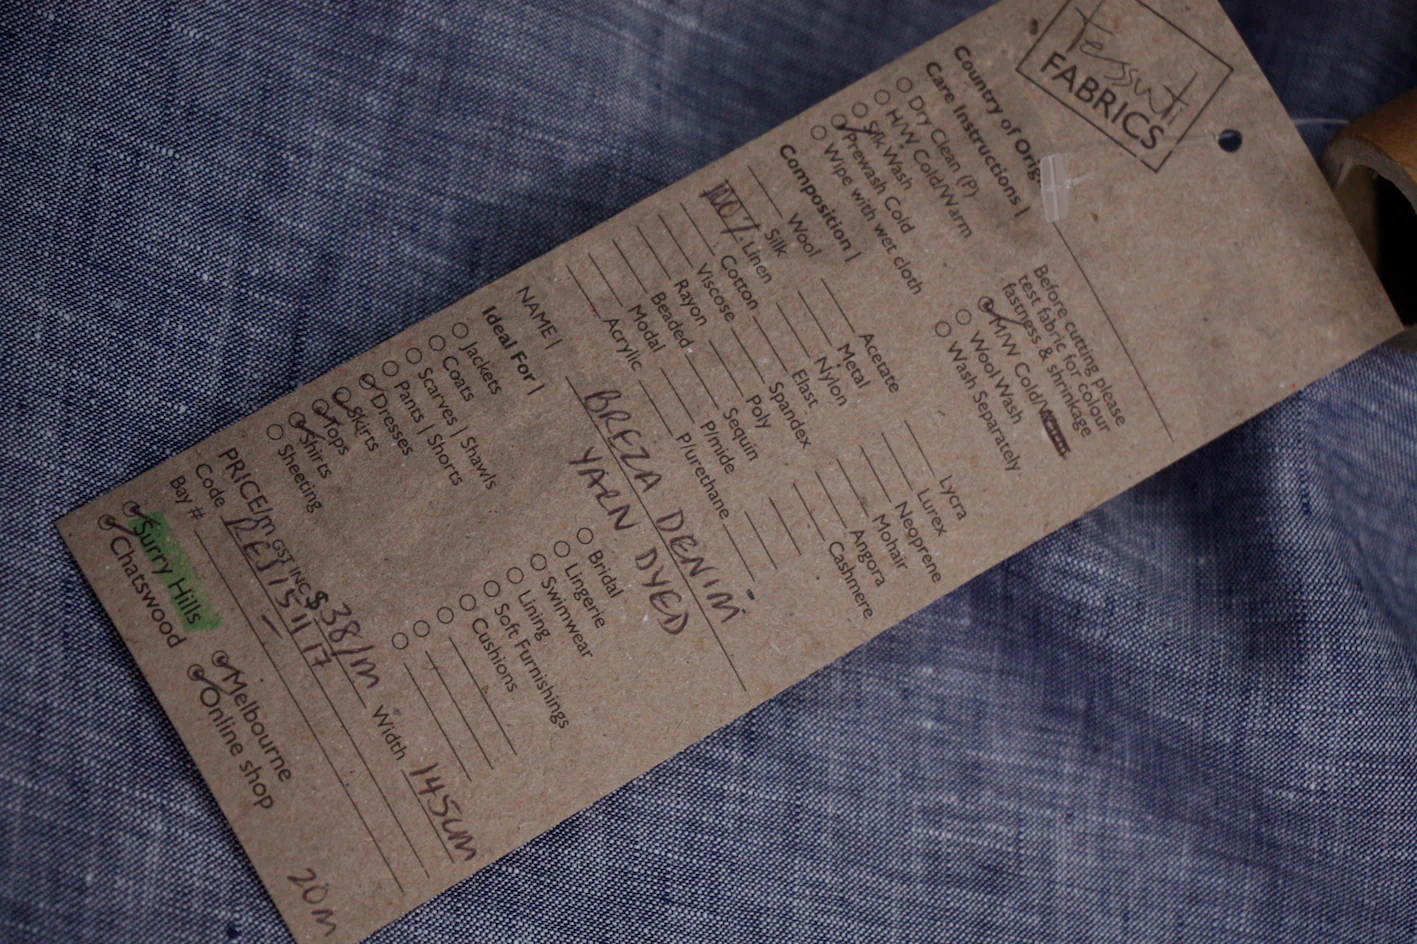 Tessuti
FABRICS
Country of Orig
Care Instructions |
Dry Clean (P)
H/W Cold/Warm
Silk Wash
Prewash Cold
Wipe with wet cloth
Before cutting please
test fabric for colour
fastness & shrinkage
M/W Cold/
Wool Wash
Wash Separately
Composition |
Wool
Silk
100% Linen
Cotton
Viscose
Rayon
Beaded
Modal
Acrylic
Acetate
Metal
Nylon
Elast
Spandex
Poly
Sequin
P/mide
P/urethane
Lycra
Lurex
Neoprene
Mohair
Angora
Cashmere
NAME | BREZA DENIM -
YARN DYED
Ideal For |
Jackets
Coats
Scarves | Shawls
Pants | Shorts
Dresses
Skirts
Tops
Shirts
Sheeting
Bridal
Lingerie
Swimwear
Lining
Soft Furnishings
Cushions
PRICE/m GST INC $38/m Width 145cm
Code
Bay #
Surry Hills
Chatswood
Melbourne
Online shop
20m